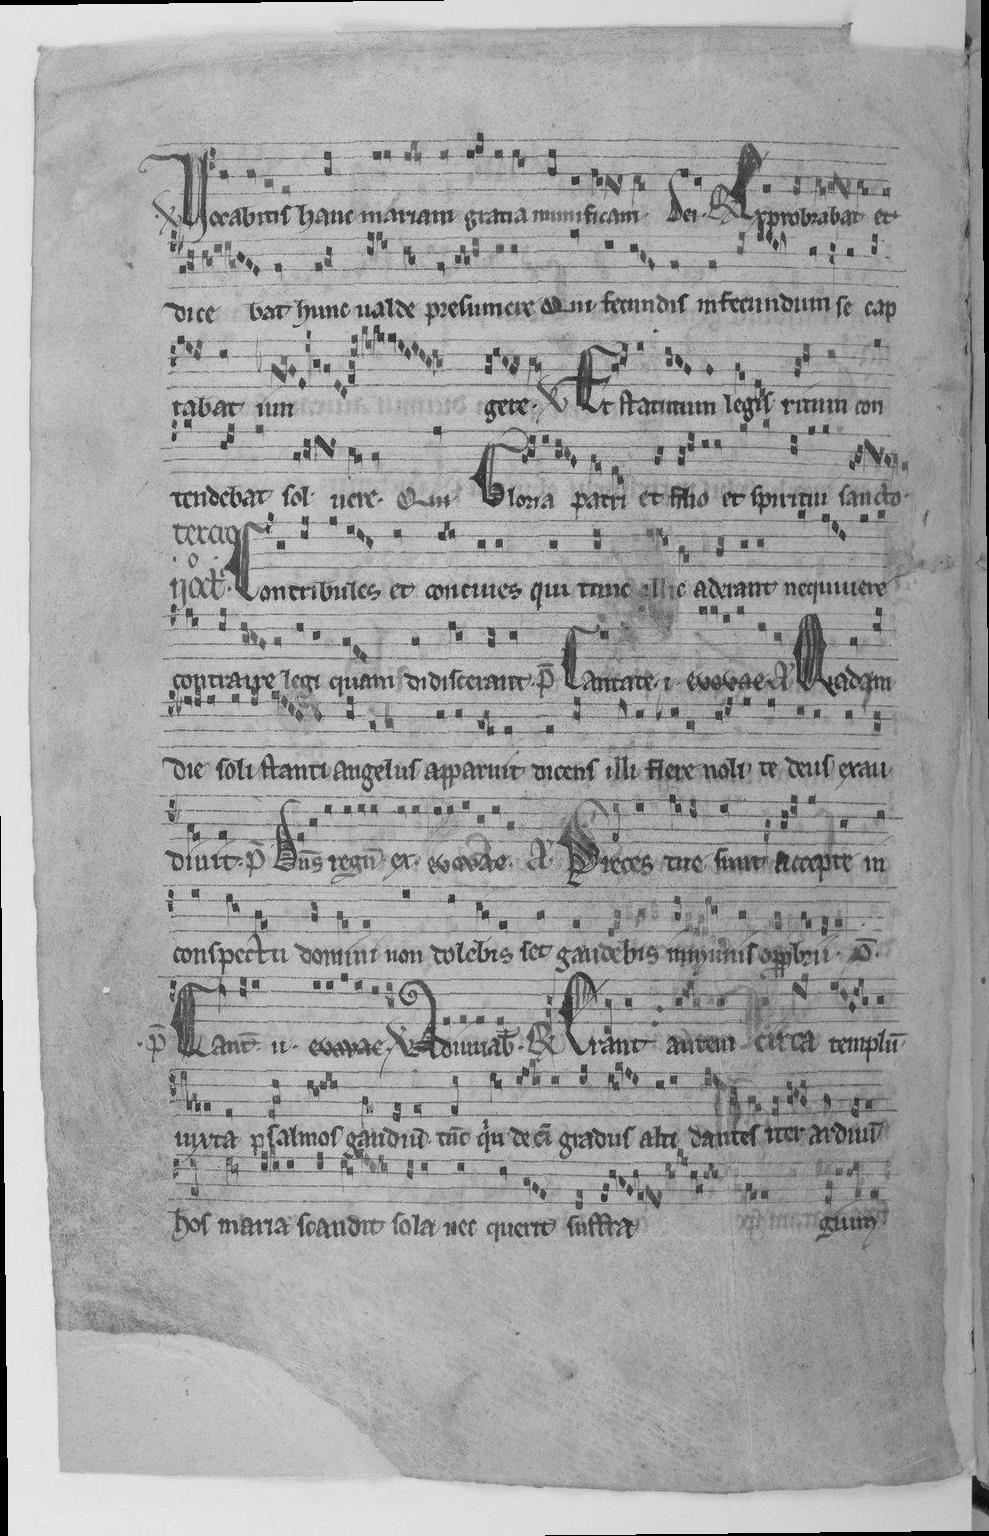 Vocabitis hanc mariam gratia munificam. Dei. Exprobrabat et
dice bat hunc ualde presumere Qui fecundis infecundum se cap
tabat iun gere. Et statutum legis ritum con
tendebat sol uere. Qui Gloria patri et filio et spiritui sancto.
tercio
noct. Contribules et conciues qui tunc illic aderant nequiuere
contraire legi quam didiscerant. p̄ Cantate. i. evovae A Quadam
die soli stanti angelus apparuit dicens illi flere noli te deus exau
diuit. p̄ Dn̄s regn̄. ex. evovae. A. Preces tue sunt accepte in
conspectu domini non dolebis set gaudebis opprobrii. P̄.
p̄ Cant̄. ii. evovae. Adiuuab̄. Erant autem circa templū
iuxta psalmos graduū tūc qui decē gradus alti dantes iter arduū
hos maria scandit sola nec querit suffra gium